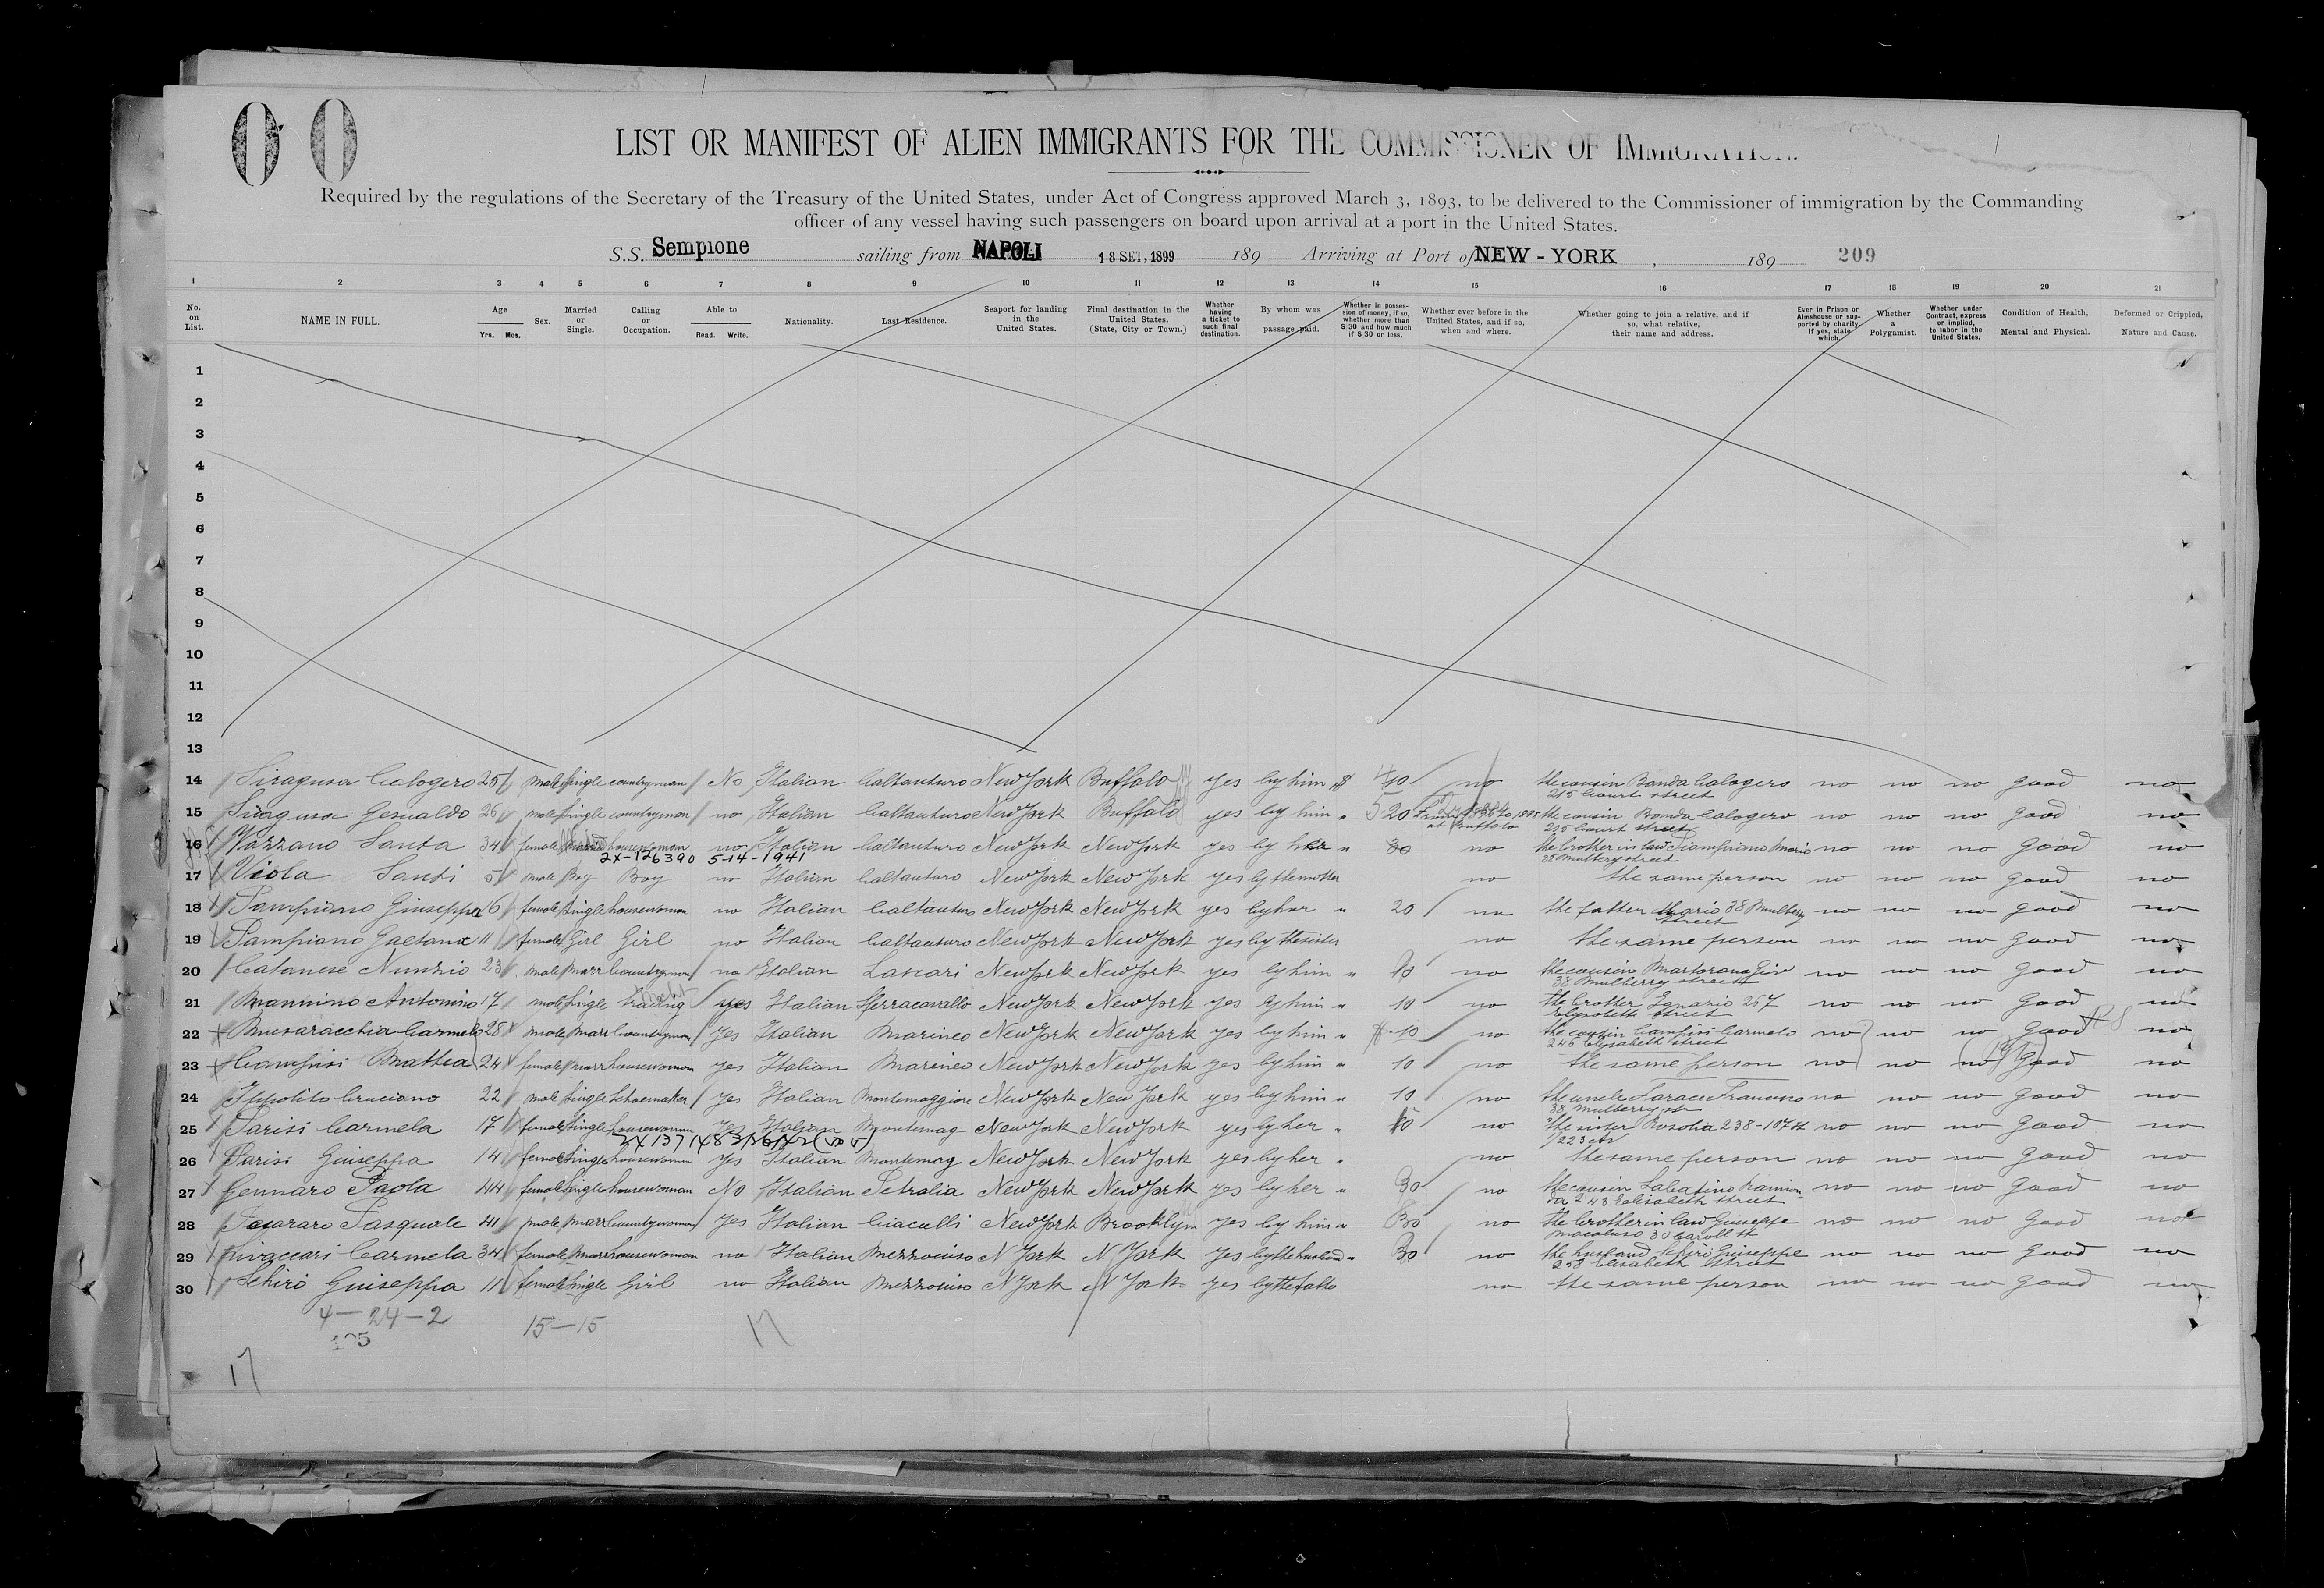 00
LIST OR MANIFEST OF ALIEN IMMIGRANTS FOR THE COMMISSIONER OF IMMIGRATION.
Required by the regulations of the Secretary of the Treasury of the United States, under Act of Congress approved March 3, 1893, to be delivered to the Commissioner of immigration by the Commanding
officer of any vessel having such passengers on board upon arrival at a port in the United States.
S.S. Sempione sailing from NAPOLI 18 SET, 1899 189 Arriving at Port of NEW-YORK , 189 209
1 2 3 4 5 6 7 8 9 10 11 12 13 14 15 16 17 18 19 20 21
No. on List. NAME IN FULL. Age Yrs. Mos. Sex. Married or Single. Calling or Occupation. Able to Read. Write. Nationality. Last Residence. Seaport for landing in the United States. Final destination in the United States. (State, City or Town.) Whether having a ticket to such final destination. By whom was passage paid. Whether in possession of money, if so, whether more than $ 30 and how much if $ 30 or less. Whether ever before in the United States, and if so, when and where. Whether going to join a relative, and if so, what relative, their name and address. Ever in Prison or Almshouse or supported by charity. If yes, state which. Whether a Polygamist. Whether under Contract, express or implied, to labor in the United States. Condition of Health, Mental and Physical. Deformed or Crippled, Nature and Cause.
1
2
3
4
5
6
7
8
9
10
11
12
13
14 Siragusa Calogero 25 male single countryman No Italian Caltauturo New York Buffalo yes by him $ 10 no the cousin Bonda Calogero no no no good no
215 Court street
15 Siragusa Gesualdo 26 male single countryman no Italian Caltauturo New York Buffalo yes by him " 20 the cousin Bonda Calogero no no no good no
at Buffalo 215 Court street
16 Vazzano Santa 34 female housewoman no Italian Caltauturo New York New York yes by her " no the brother in law Sampiano Mario no no no good no
2X-126390 5-14-1941 38 Mulbery street
17 Viola Santi 5 male Boy Boy no Italian Caltauturo New York New York yes by the mother no the same person no no no good no
18 Sampiano Giuseppa 16 female single housewoman no Italian Caltauturo New York New York yes by her " 20 no the father Mario 38 Mulbery no no no good no
street
19 Sampiano Gaetana 11 female Girl Girl no Italian Caltauturo New York New York yes by the sister no the same person no no no good no
20 Catanese Nunzio 23 male marr countryman no Italian Lascari New York New York yes by him " 10 no the cousin Martorana no no no good no
38 Mulberry street
21 Mannino Antonino 17 male single trading yes Italian Sferracavallo New York New York yes by him " 10 no the brother Ignazio 267 no no no good no
Elisabeth street
22 Musaracchia Carmelo 28 male marr countryman yes Italian Marineo New York New York yes by him " 10 no the cousin Campisi Carmelo no no no good no
246 Elisabeth street
23 Campisi Mattea 24 female marr housewoman yes Italian Marineo New York New York yes by him " 10 no the same person no no no good no
24 Ippolito Cruciano 22 male single Schoemaker yes Italian Montemaggiore New York New York yes by him " 10 no the uncle Sarace Francesco no no no good no
38 Mulberry str
25 Parisi Carmela 17 female single housewoman yes Italian Montemag New York New York yes by her " 10 no the sister Rosolia 238-107 st no no no good no
26 Parisi Giuseppa 14 female single housewoman yes Italian Montemag New York New York yes by her " no the same person no no no good no
27 Gennaro Paola 44 female single housewoman No Italian Petralia New York New York yes by her " 30 no the cousin Sabatino no no no good no
248 Elisabeth street
28 Pasquale 41 male marr countryman yes Italian Ciaculli New York Brooklyn yes by him " 30 no the brother in law Giuseppe no no no good no
Macaluso 30 Caroll st
29 Carmela 34 female marr housewoman no Italian Mezzoiuso N York N York yes by the husband " 30 no the husband Schirò Giuseppe no no no good no
258 Elisabeth street
30 Schirò Giuseppa 11 female single Girl no Italian Mezzoiuso N York N York yes by the father no the same person no no no good no
4-24-2
15-15
17
17